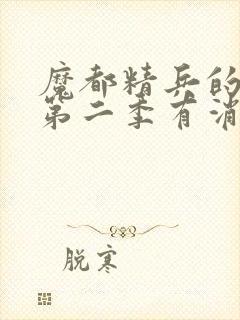 魔都精兵的
第二季有消
脱寒